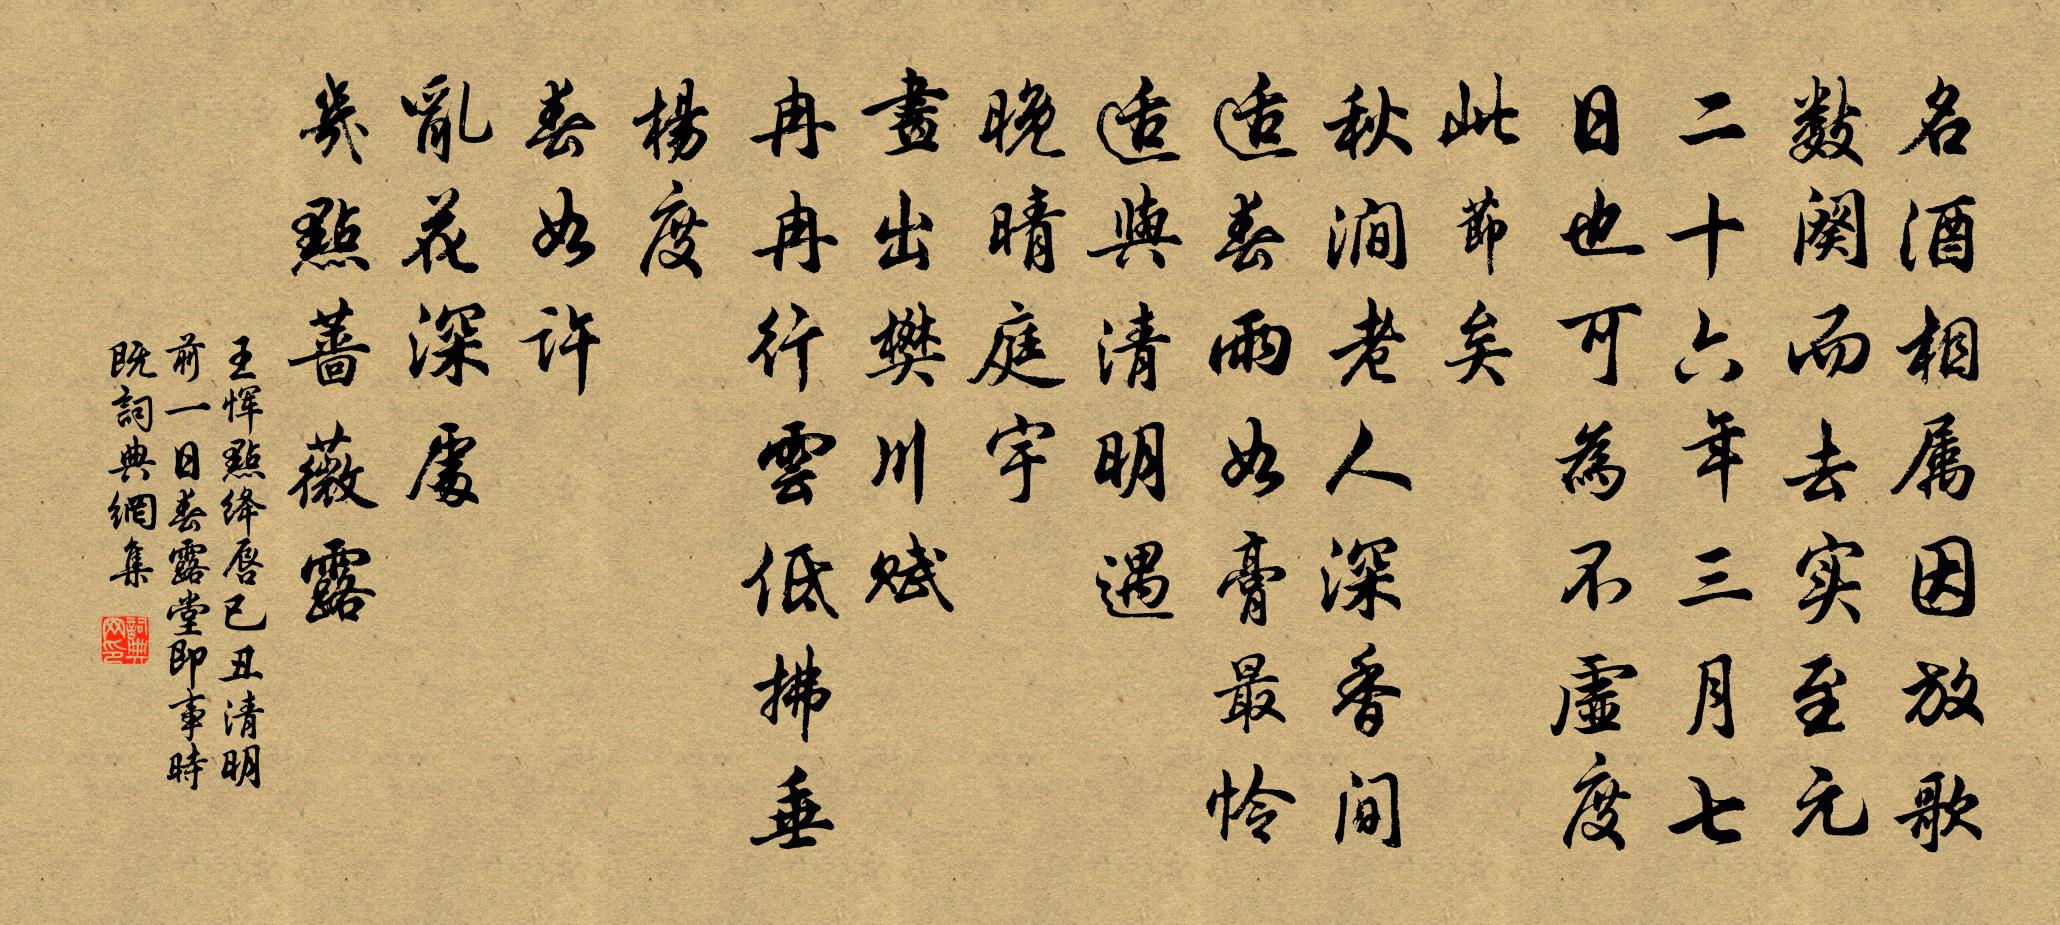 名酒相属因放歌
数阕而去实至元
二十六年三月七
日也可為不虛度
此節矣
秋澗老人深香间
适春雨如膏最怜
适與清明遇
晚晴庭宇
畫出樊川赋
冉冉行雲低拂垂
楊度
春如许
亂花深處
幾點蔷薇露
王恽點绛唇已丑清明
前一日春露堂即事時
既詞典網集
詞典网印